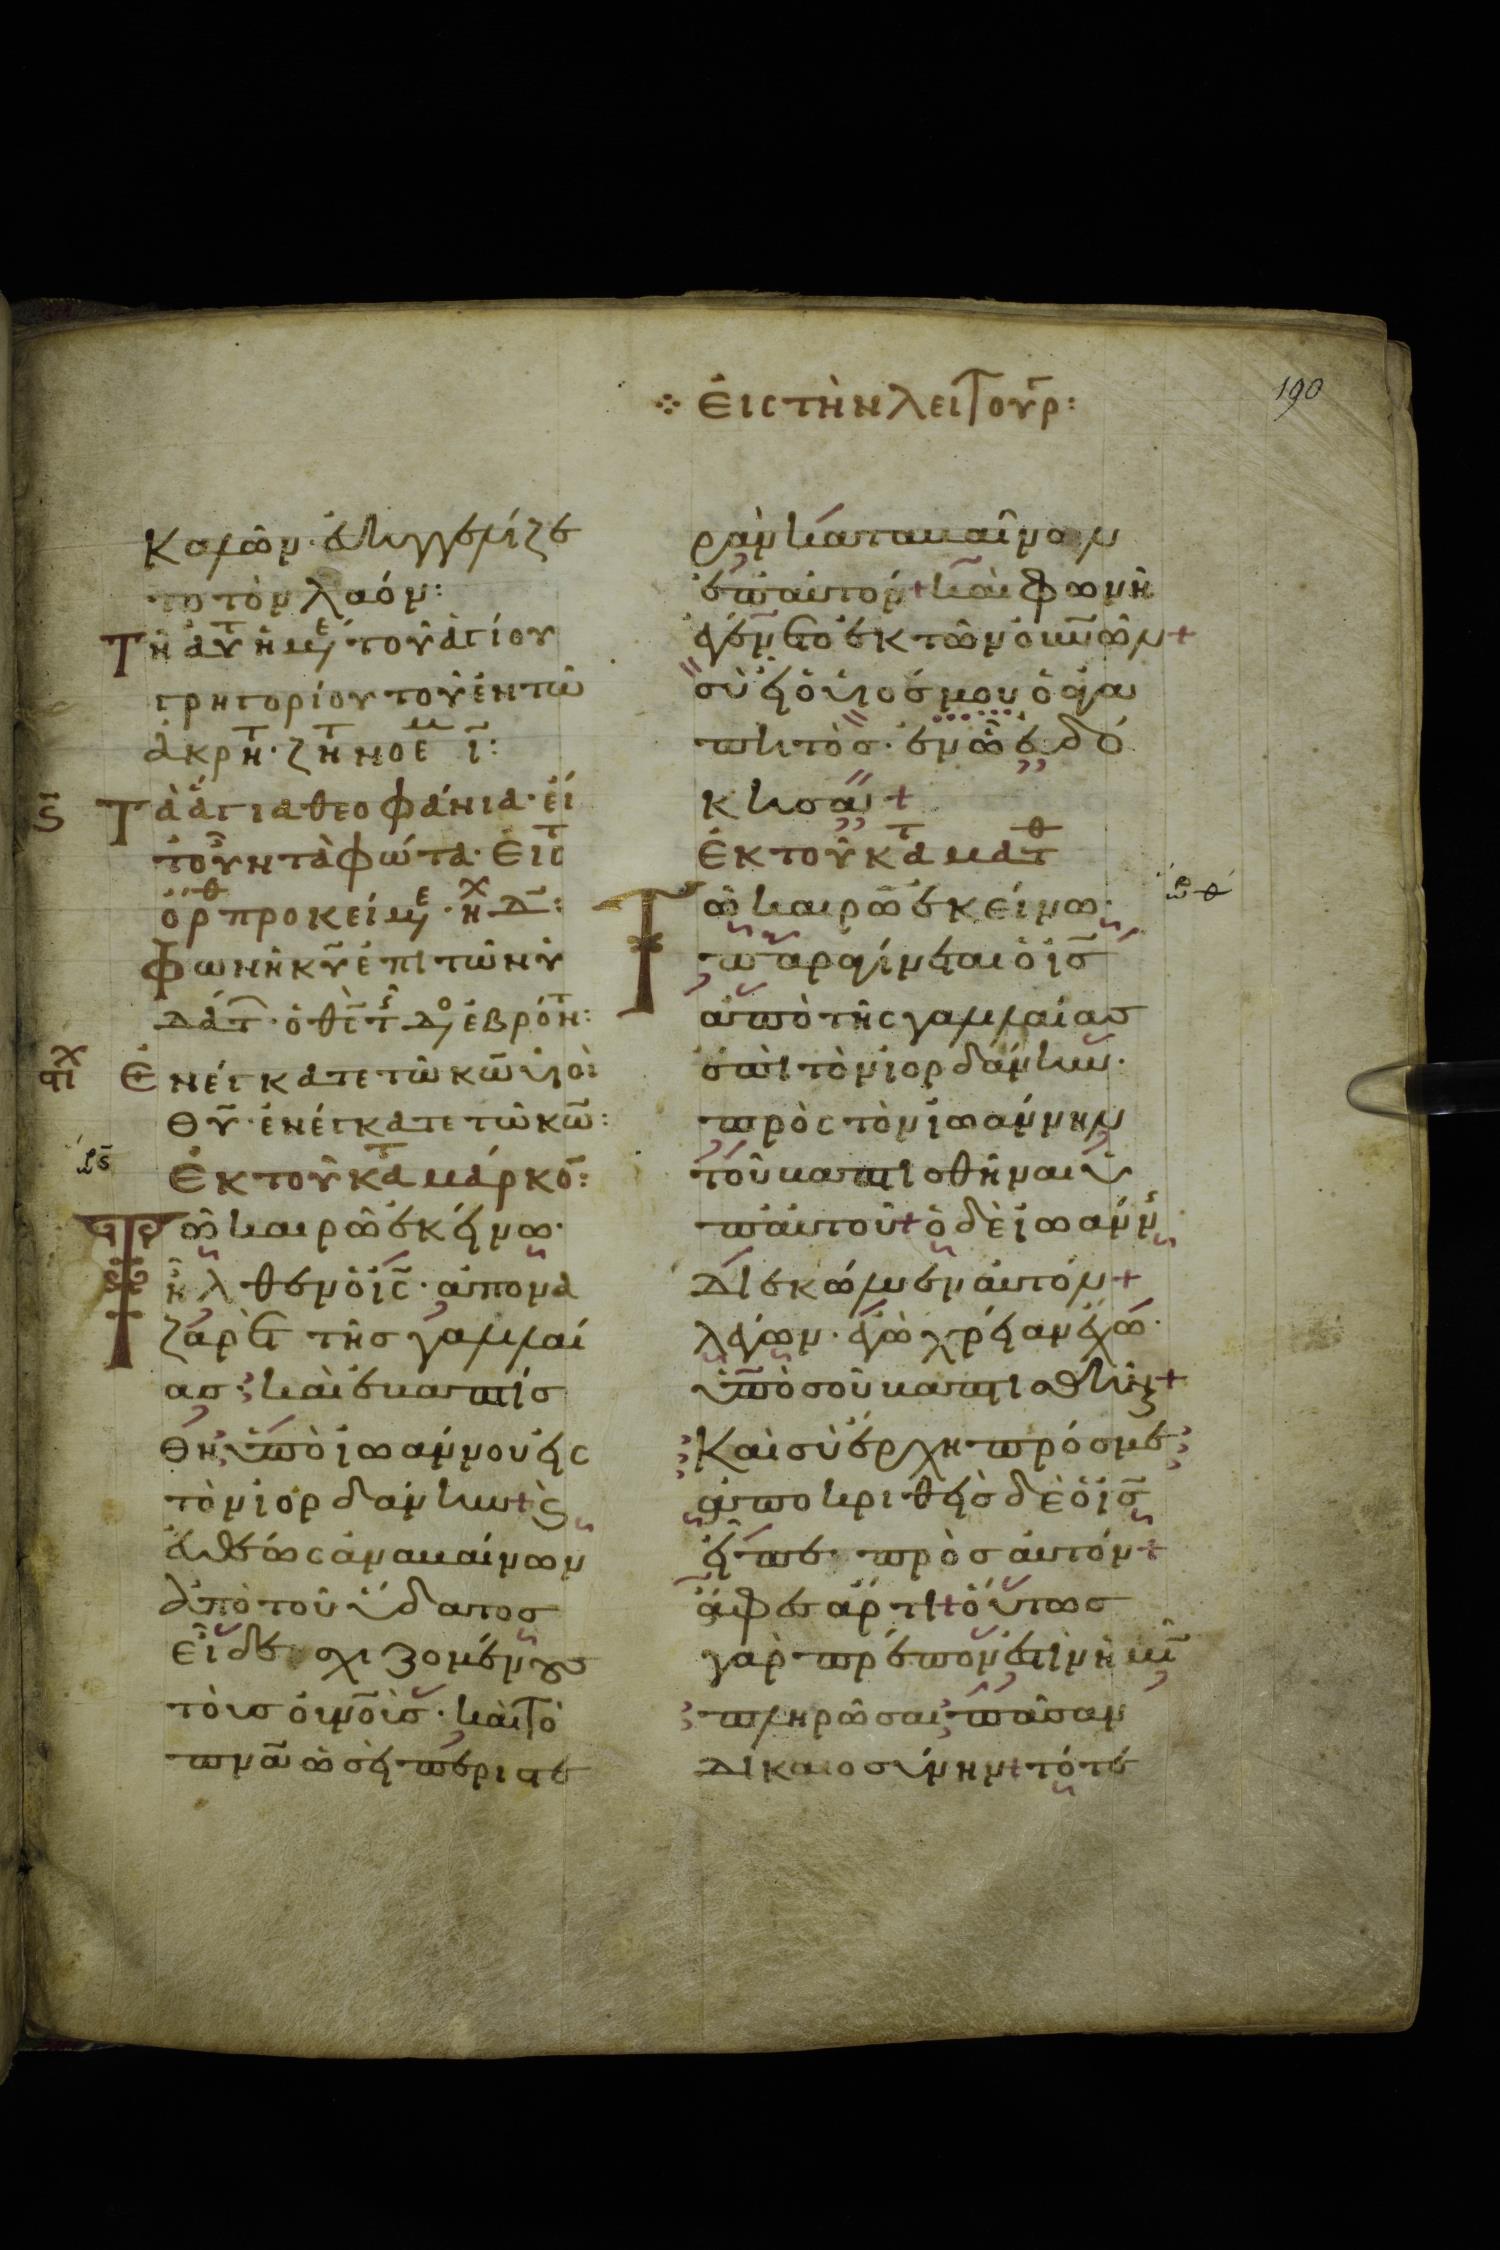 190
Εἰς τὴν λειτουρ:
Καμῶν· εὐηγγελίζε
το τὸν λαόν:
Τῆ αὐτ ἡμε τοῦ ἁγίου
γρηγορίου τοῦ ἐν τῶ
ἀκρητ· ζητ νοεμ ι:
ϛ Τὰ ἅγια θεοφάνια· εἴ
τουν τὰ φώτα· Εἰς τ
ὀρθ προκείμε· ἦχ δ:
Φωνὴ κυ ἐπὶ τῶν ὑ
δάτ· ὁ θς τς δο ἐβρόντ:
στιχ Ἐνέγκατε τῶ κω υἱοὶ
θυ· ἐνέγκατε τῶ κω:
Ἐκ τοῦ κατα μάρκο:
Τῶ καιρῶ ἐκείνω·
ἦλθεν ὁ ις· ἀπὸ να
ζαρὲτ τῆς γαλιλαί
ας· καὶ ἐβαπτίσ
θη ὑπὸ ἰωάννου εἰς
τὸν ἰορδάνην+ καὶ
εὐθέως ἀναβαίνων
ἀπὸ τοῦ ὕδατος
εἶδε σχιζομένους
τοὺς οὐνους· καὶ τὸ
πνα ὡσεὶ περιστε
ρὰν καταβαῖνον
ἐπ' αὐτόν+ καὶ φωνὴ
ἐγένετο ἐκ τῶν οὐνων+
σὺ εἶ ὁ υἱός μου ὁ ἀγα
πητὸς· ἐν ὧ εὐδό
κησα+
Ἐκ τοῦ κατα ματθ
Τῶ καιρῶ ἐκείνω·
παραγίνεται ὁ ις
ἀπὸ τῆς γαλιλαίας
ἐπὶ τὸν ἰορδάνην·
πρὸς τὸν ἰωάννην
τοῦ βαπτισθῆναι ὑ
π' αὐτοῦ+ ὁ δὲ ἰωάνν
διεκώλυεν αὐτόν+
λέγων· ἐγὼ χρείαν ἔχω·
ὑπὸ σοῦ βαπτισθῆναι+
Καὶ σὺ ἔρχη πρός με
ἀποκριθεὶς δὲ ὁ ις
εἶπε· πρὸς αὐτόν+
ἄφες ἄρτι+ οὕτως
γὰρ πρέπον ἐστὶν ἡμῖν
πληρῶσαι πᾶσαν
δικαιοσύνην+ τότε